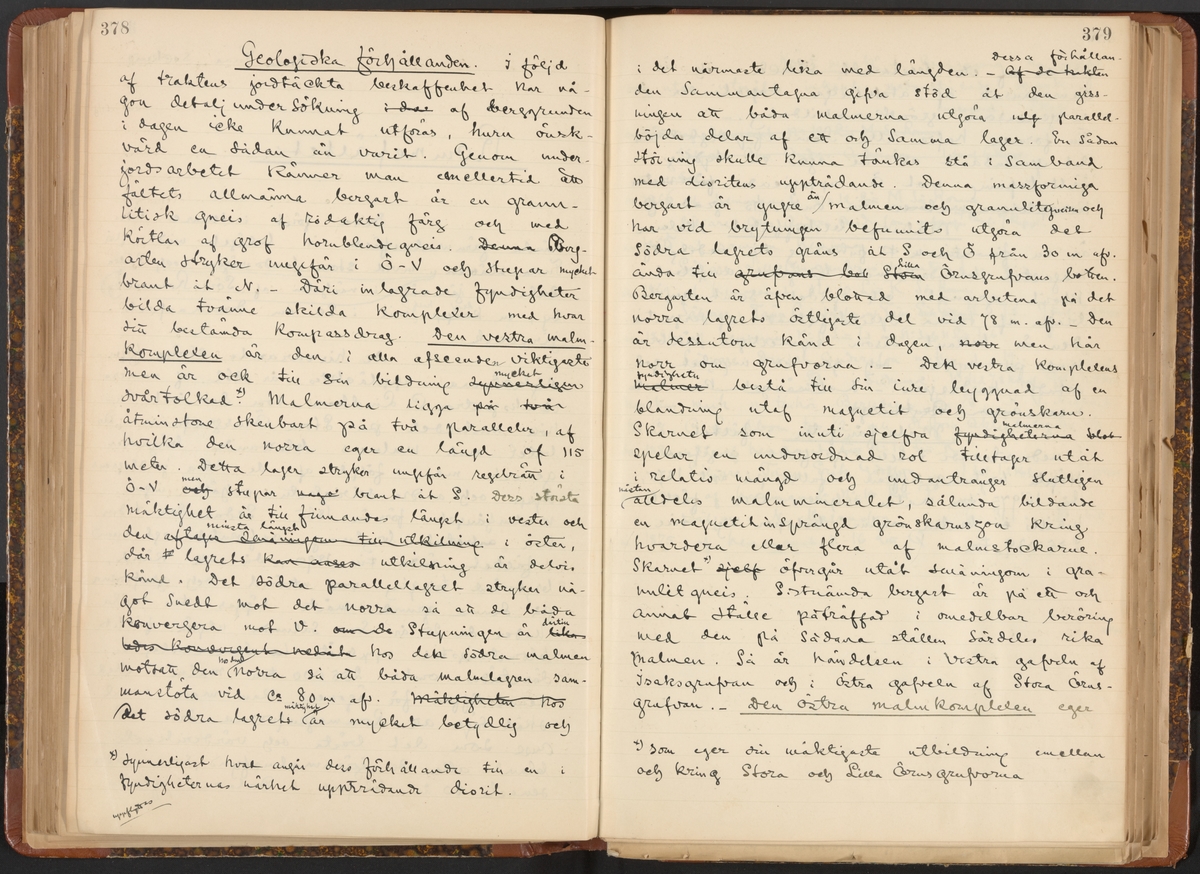 378
Geologiska förhållanden. I följd
af traktens jordtäckta beskaffenhet har nå-
gon detaljundersökning af berggrunden
i dagen icke kunnat utföras, huru önsk-
värd en sådan än varit. Genom under-
jordsarbetet känner man emellertid att
fältets allmänna bergart är en granu-
litisk gneis af rödaktig färg och med
körtlar af grof hornblendegneis. Denna Berg-
arten stryker ungefär i Ö-V och stupar mycket
brant åt N. – Däri inlagrade fyndigheter
bilda tvänne skilda komplexer med hvar
sin bestämda kompassdrag. Den vestra malm-
komplexen är den i alla afseenden viktigaste
mycket
men är ock till sin bildning synnerligen
svårtolkad. *) Malmerna ligga på två
åtminstone skenbart på två paralleler, af
hvilka den norra eger en längd af 115
meter. Detta lager stryker ungefär regelrätt i
men
Ö-V och stupar brant åt S. Dess största
mäktighet är till finnandes längst i vester och
minsta längst
den aftager småningom till utkilning i öster,
där lagrets utkilning är delvis
känd. Det södra parallellagret stryker nå-
got snedt mot det norra så att de båda
konvergera mot V. om de Stupningen är
hos den södra malmen
motsatt den norra så att båda malmlagren sam-
manstöta vid ca 80 m af. Mäktigheten hos
mäktighet
det södra lagrets är mycket betydlig och
*) Synnerligast hvad angår dess förhållande till en i
fyndigheternas närhet uppträdande diorit.
379
dessa förhållan-
i det närmaste lika med längden. –
den sammantagna gifva stöd åt den giss-
ningen att båda malmerna utgöra utg parallel-
böjda delar af ett och samma lager. En sådan
störning skulle kunna tänkas stå i samband
med dioritens uppträdande. Denna massformiga
än
bergart är yngre malmen och granulitgneisen och
har vid brytningen befunnits utgöra det
södra lagrets gräns åt S och Ö från 30 m af.
Lilla
ända till grufvans bot Stora Örnsgrufvans botten.
Bergarten är äfven blottad med arbetena på det
norra lagrets östligaste del vid 78 m. af. – Den
är dessutom känd i dagen, norr men här
norr om grufvorna. – Den vestra komplexens
fyndigheter
malmer bestå till sin inre byggnad af en
blandning utaf magnetit och grönskarn.
malmerna
Skarnet som inuti sjelfva fyndigheterna blott
spelar en underordnad rol tilltager utåt
i relativ mängd och undantränger slutligen
nästan
alldeles malmmineralet, sålunda bildande
en magnetitinsprängd grönskarnszon kring
hvardera eller flera af malmstockarne.
Skarnet *) sjelf öfvergår utåt småningom i gra-
nulitgneis. Sistnämda bergart är på ett och
annat ställe påträffad i omedelbar beröring
med den på sådana ställen särdeles rika
malmen. Så är händelsen i Vestra gafveln af
Isaksgrufvan och i Östra gafveln af Stora Örns-
grufvan. – Den östra malmkomplexen eger
*) Som eger sin mäktigaste utbildning emellan
och kring Stora och Lilla Örnsgrufvorna